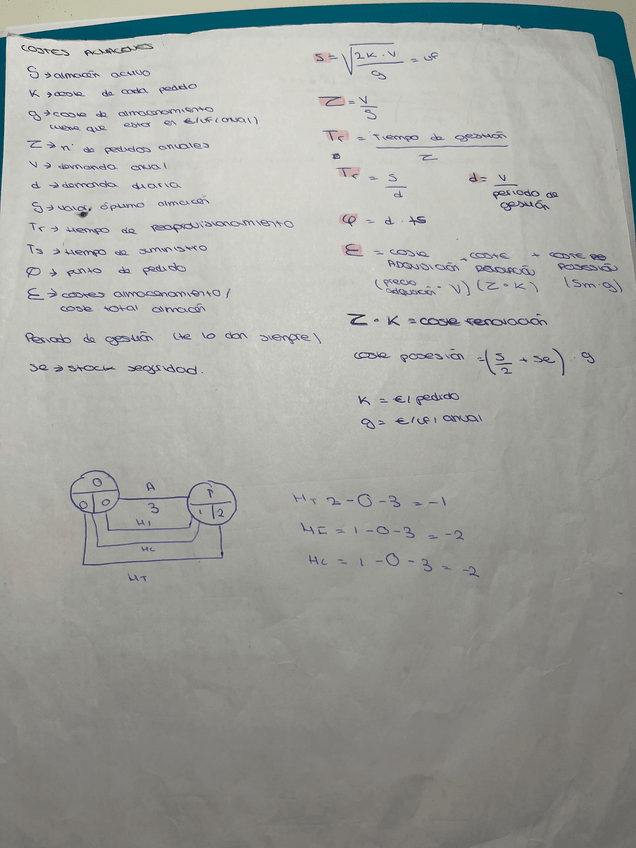 COSTES ALMACENES
S → almacén activo
K → coste de cada pedido
g → coste de almacenamiento
(tiene que estar en €/uf/anual)
Z → nº de pedidos anuales
V → demanda anual
d → demanda diaria
S → valor óptimo almacén
Tr → tiempo de reaprovisionamiento
Ts → tiempo de suministro
φ → punto de pedido
E → costes almacenamiento/
coste total almacén
Periodo de gestión (te lo dan siempre)
se → stock seguridad.
S = √(2K·V / g) = uf
Z = V / S
Tr = Tiempo de gestión / Z
Tr = S / d
d = V / periodo de gestión
φ = d · ts
E = coste ADQUISICIÓN + COSTE + COSTE
POSESIÓN
(precio adquisición · V) (Z · K) (Sm·g)
Z · K = coste renovación
coste posesión = (S/2 + se) · g
K = €/pedido
g = €/uf/anual
0
0 0
A
3
1
1 2
HI
HC
HT
HT 2-0-3 = -1
HI = 1-0-3 = -2
HC = 1-0-3 = -2